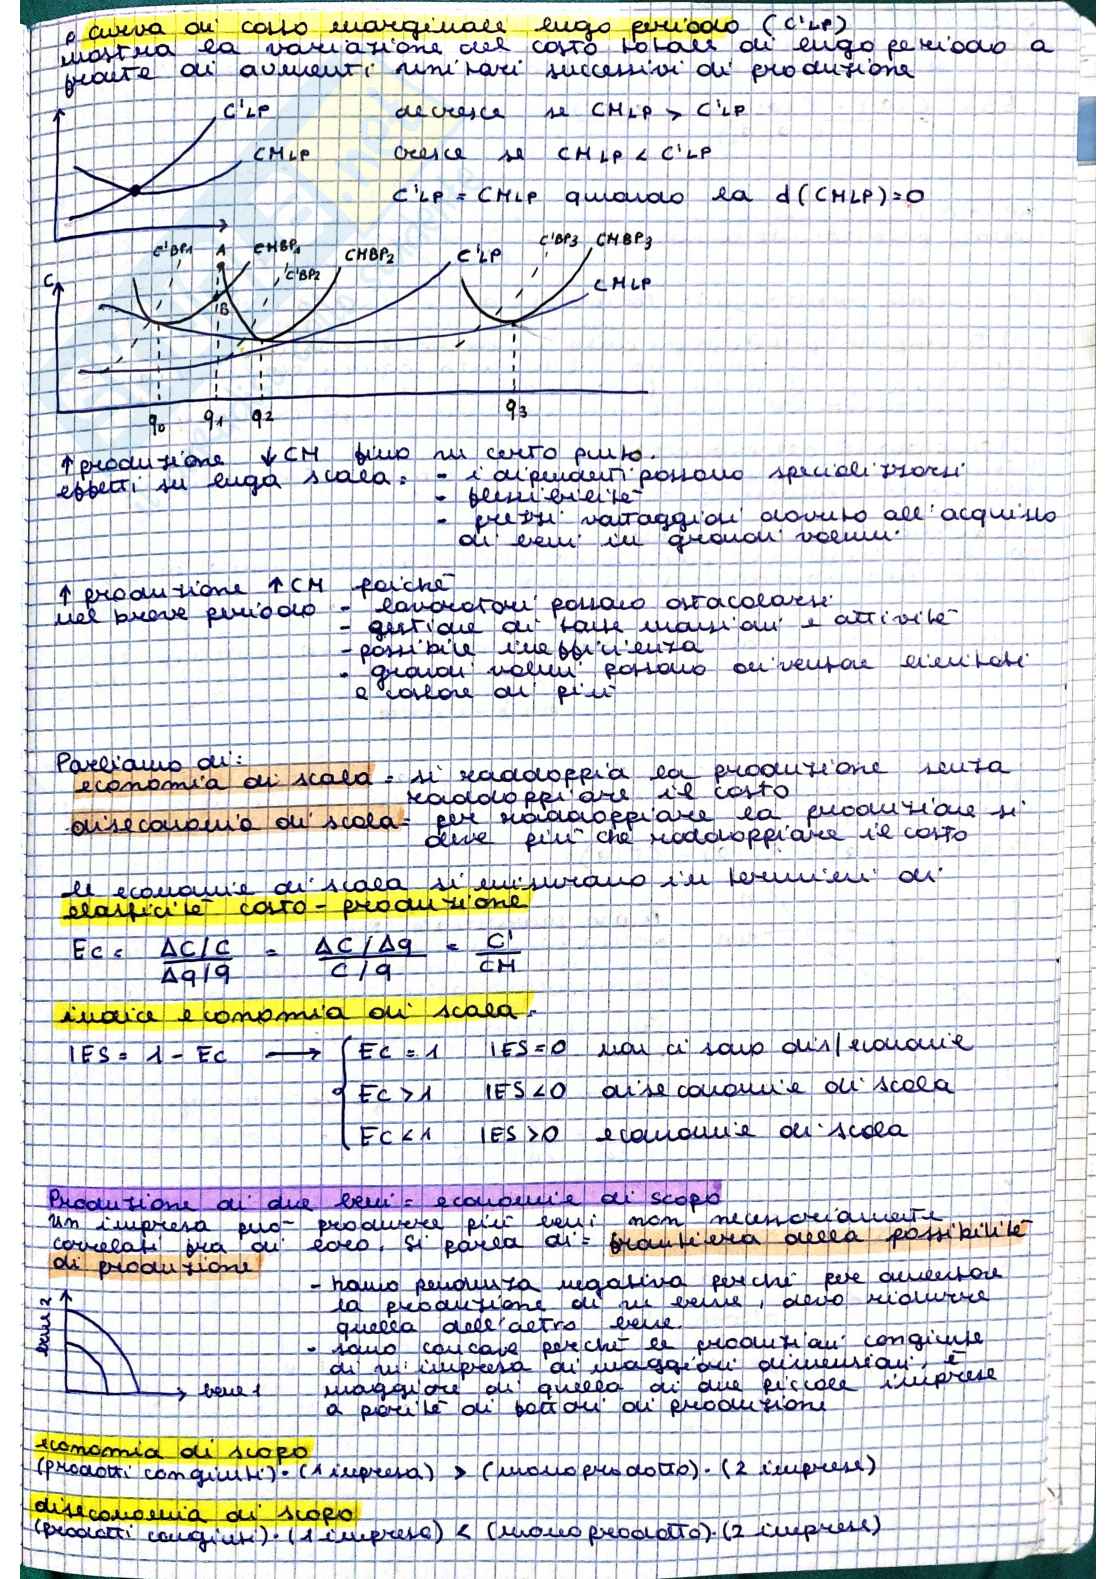 curva di costo marginale lungo periodo (C'LP)
mostra la variazione del costo totale di lungo periodo a
fronte di aumenti unitari successivi di produzione
C'LP
CMLP
decresce se CMLP > C'LP
cresce se CMLP < C'LP
C'LP = CMLP quando la d(CMLP)=0
C
C'BP1
A
CMBP1
C'BP2
CMBP2
C'LP
C'BP3
CMBP3
CMLP
B
q0
q1
q2
q3
↑ produzione ↓ CM fino un certo punto.
effetti su lunga scala: - i dipendenti possono specializzarsi
- flessibilità
- prezzi vantaggiosi dovuto all'acquisto
di beni in grandi volumi.
↑ produzione ↑ CM poiché
nel breve periodo - lavoratori possono ostacolarsi
- gestione di tante mansioni e attività
- possibile inefficienza
- grandi volumi possono diventare limitati
e costare di più
Parliamo di:
economia di scala = si raddoppia la produzione senza
raddoppiare il costo
diseconomia di scala = per raddoppiare la produzione si
deve più che raddoppiare il costo
le economie di scala si misurano in termini di
elasticità costo-produzione
Ec = ΔC/C / Δq/q = ΔC/Δq / C/q = C' / CM
indice economia di scala.
IES = 1 - Ec → { Ec = 1 IES = 0 non ci sono dis/economie
Ec > 1 IES < 0 diseconomie di scala
Ec < 1 IES > 0 economie di scala
Produzione di due beni = economie di scopo
un impresa può produrre più beni non necessariamente
correlati fra di loro. Si parla di = frontiera della possibilità
di produzione
- hanno pendenza negativa perché per aumentare
la produzione di un bene, devo ridurre
quella dell'altro bene.
- sono concave perché le produzioni congiunte
di un'impresa di maggiori dimensioni, è
maggiore di quella di due piccole imprese
a parità di fattori di produzioni
bene 2
bene 1
economia di scopo
(prodotti congiunti)·(1 impresa) > (monoprodotto)·(2 imprese)
diseconomia di scopo
(prodotti congiunti)·(1 impresa) < (monoprodotto)·(2 imprese)